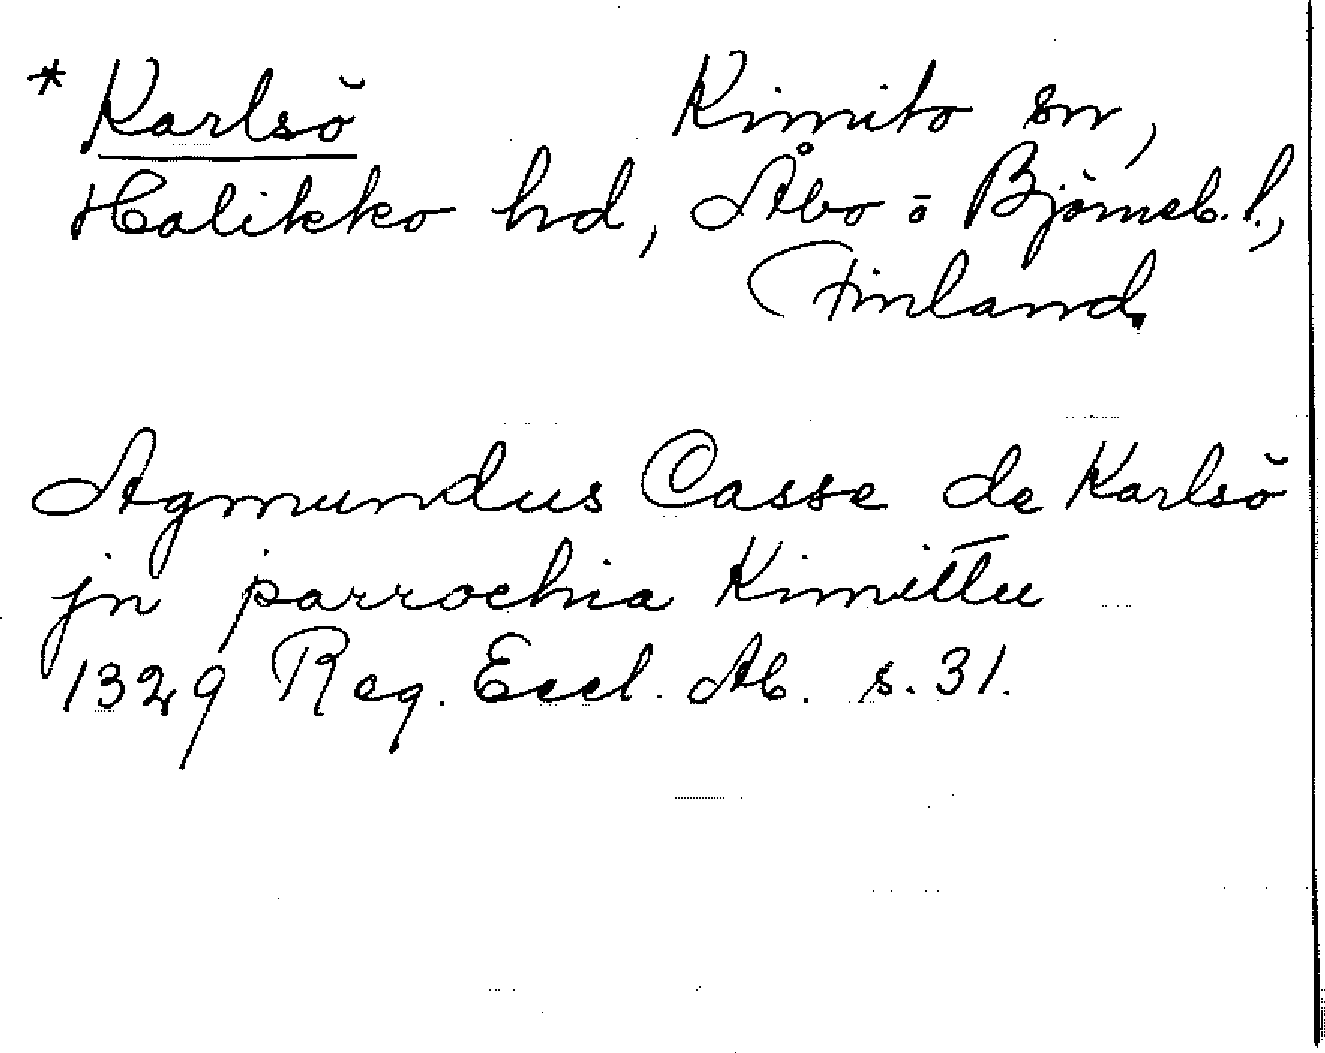 * Karlsö Kimito sn,
Halikko hd, Åbo o Björneb. l.,
Finland.
Agmundus Casse de Karlsö
jn parrochia Kimittu
1329 Reg. Eccl. Ab. s. 31.